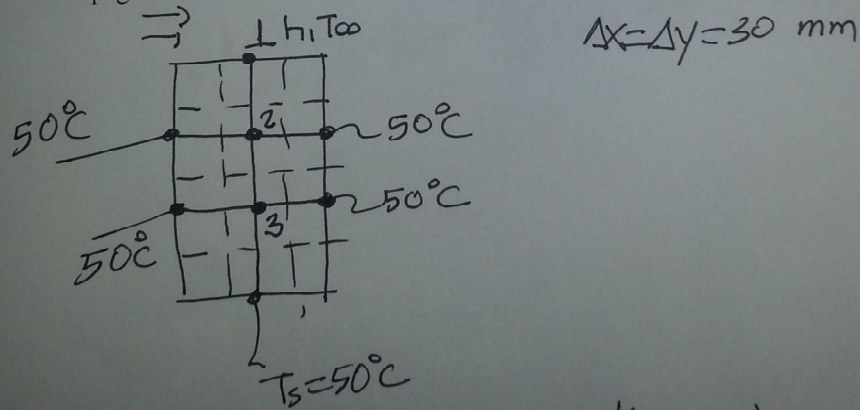 1 h, T∞
Δx=Δy=30 mm
50°C
2
50°C
50°C
3
50°C
Ts=50°C